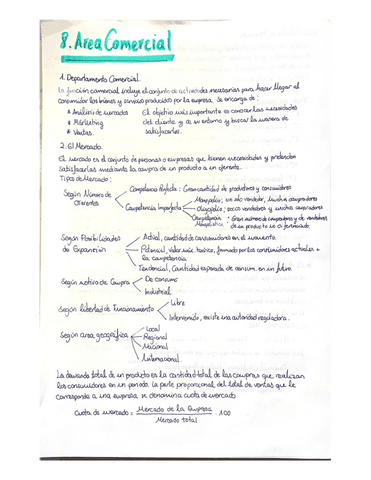 8. Area Comercial
1. Departamento Comercial.
La función comercial incluye el conjunto de actividades necesarias para hacer llegar al
consumidor los bienes y servicios producidos por la empresa. Se encarga de:
* Análisis de mercados
* Márketing
* Ventas.
El objetivo más importante es conocer las necesidades
del cliente y de su entorno y buscar la manera de
satisfacerlas.
2. El Mercado.
El mercado es el conjunto de personas o empresas que tienen necesidades y pretenden
satisfacerlas mediante la compra de un producto a un oferente.
Tipos de Mercado:
Según Número de
Oferentes
Competencia Perfecta: Gran cantidad de productores y consumidores
Competencia Imperfecta
Monopolio; un solo vendedor, muchos compradores
Oligopolio; pocos vendedores y muchos compradores
Competencia Monopolística
Gran número de compradores y de vendedores
de un producto no
Según Posibilidades
de Expansión
Actual, cantidad de consumidores en el momento.
Potencial, valor máx. teórico, formado por los consumidores actuales +
la competencia
Tendencial, Cantidad esperada de consum. en un futuro.
Según motivo de Compra
De consumo
Industrial
Según libertad de Funcionamiento
Libre
Intervenido, existe una autoridad reguladora.
Según area geográfica
Local
Regional
Nacional
Internacional.
La demanda total de un producto es la cantidad total de las compras que realizan
los consumidores en un periodo. La parte proporcional del total de ventas que le
corresponde a una empresa se denomina cuota de mercado
Cuota de mercado = Mercado de la Empresa / Mercado total · 100